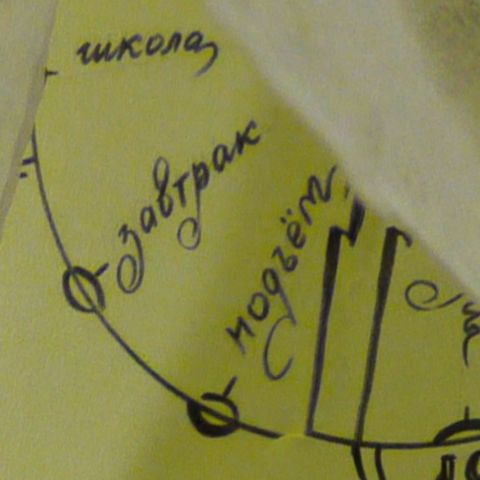 школа,
завтрак
подъём